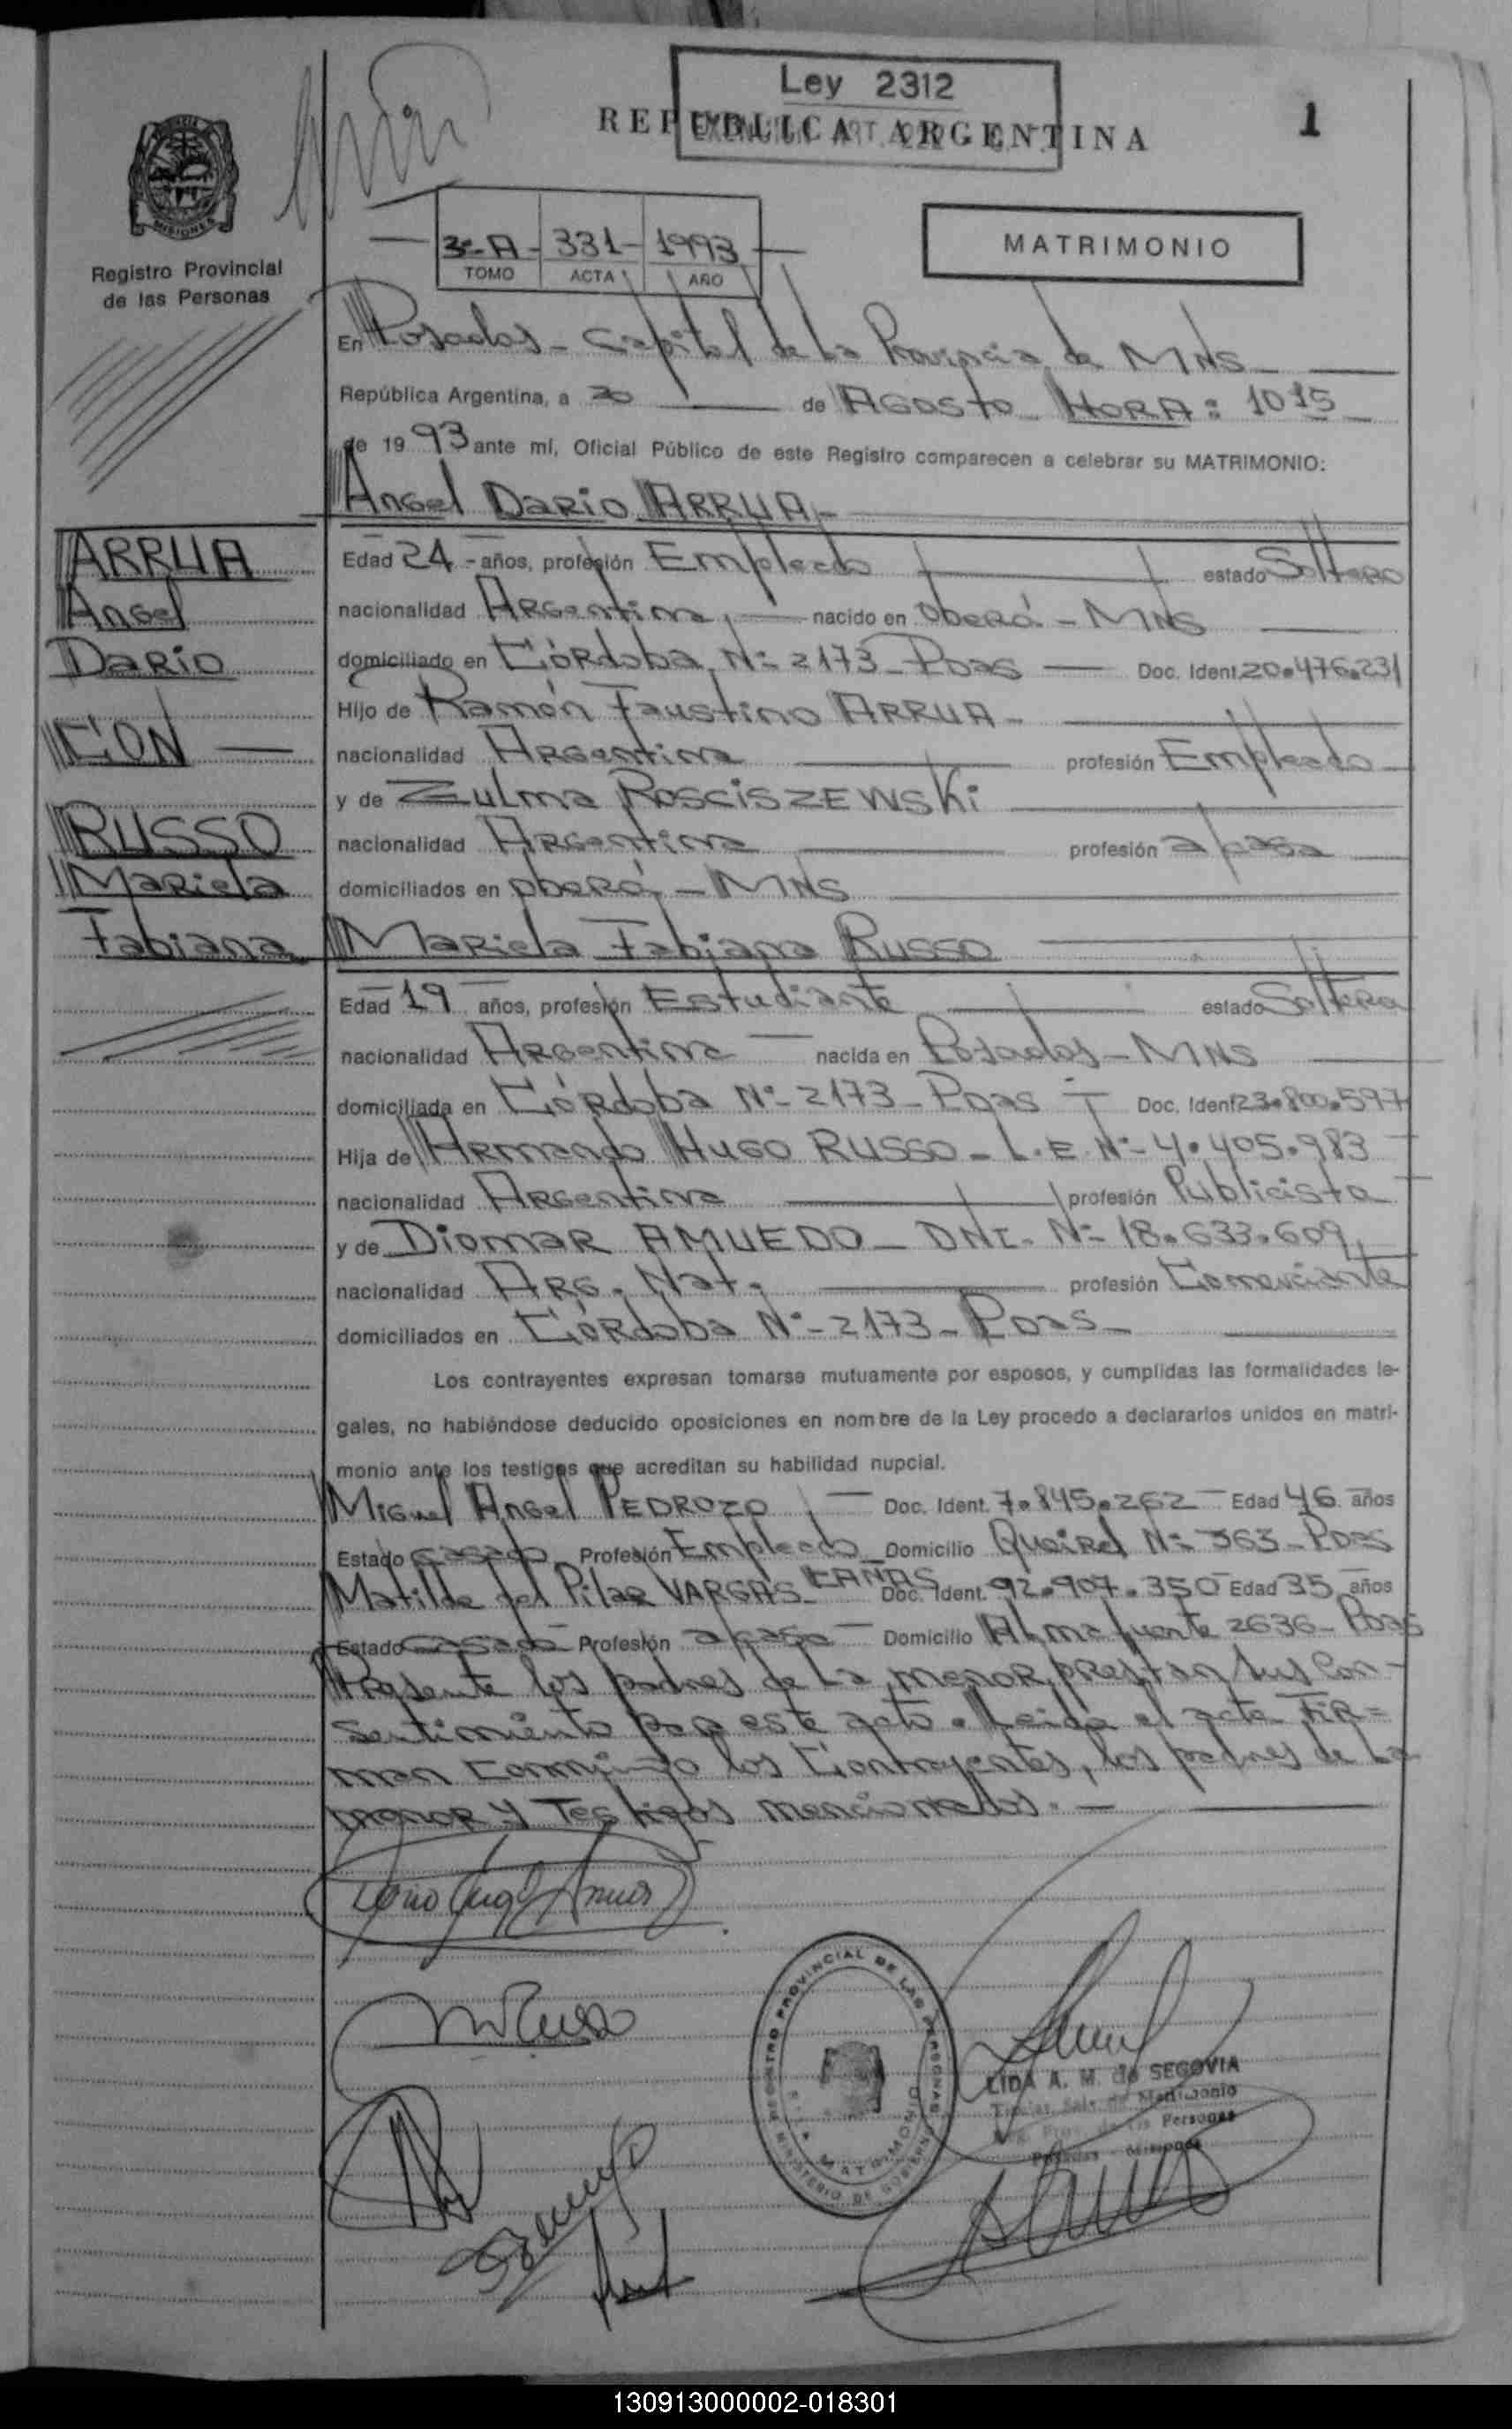 Ley 2312
REPUBLICA ARGENTINA
1
MISIONES
Registro Provincial
de las Personas
3-A- 331- 1993
TOMO ACTA AÑO
MATRIMONIO
En Posadas - Capital de La Provincia de MNS
República Argentina, a 20 de AGOSTO HORA: 1015
de 1993 ante mí, Oficial Público de este Registro comparecen a celebrar su MATRIMONIO:
Angel DARIO ARRUA
ARRUA
Angel
DARIO
CON
RUSSO
Mariela
Fabiana
Edad 24 - años, profesión Empleado estado Soltero
nacionalidad Argentina, nacido en Oberá - MNS
domiciliado en Córdoba Nº 2173 - Pdas Doc. Ident. 20.476.231
Hijo de Ramón Faustino ARRUA -
nacionalidad Argentina profesión Empleado
y de Zulma ROSCISZEWSKi
nacionalidad Argentina profesión a/casa
domiciliados en Oberá, - MNS
Mariela Fabiana Russo
Edad 19 años, profesión Estudiante estado Soltera
nacionalidad Argentina nacida en Posadas - MNS
domiciliada en Córdoba Nº - 2173 - Pdas Doc. Ident. 23.800.597
Hija de Armando HUGO RUSSO - L.E. Nº - 4.405.983
nacionalidad Argentina profesión Publicista
y de Diomar AMUEDO - DNI. Nº 18.633.609
nacionalidad Arg. Nat. profesión Comerciante
domiciliados en Córdoba Nº - 2173 - Pdas -
Los contrayentes expresan tomarse mutuamente por esposos, y cumplidas las formalidades le-
gales, no habiéndose deducido oposiciones en nombre de la Ley procedo a declararlos unidos en matri-
monio ante los testigos que acreditan su habilidad nupcial.
Miguel Angel PEDROZO Doc. Ident. 7.845.262 Edad 46 años
Estado casado Profesión Empleado Domicilio Queirel Nº 363 - Pdas
Matilde del Pilar VARGAS CAÑAS Doc. Ident. 92.907.350 Edad 35 años
Estado casada Profesión a/casa Domicilio Almafuerte 2636 - Pdas
Presente los padres de La menor prestan sus Con-
sentimiento por este acto. Leida el acta FIR=
man conmigo los Contrayentes, los padres de La
menor y Testigos mencionados. -
REGISTRO PROVINCIAL DE LAS PERSONAS
MATRIMONIO
MINISTERIO DE GOBIERNO
LIDA A. M. de SEGOVIA
130913000002-018301